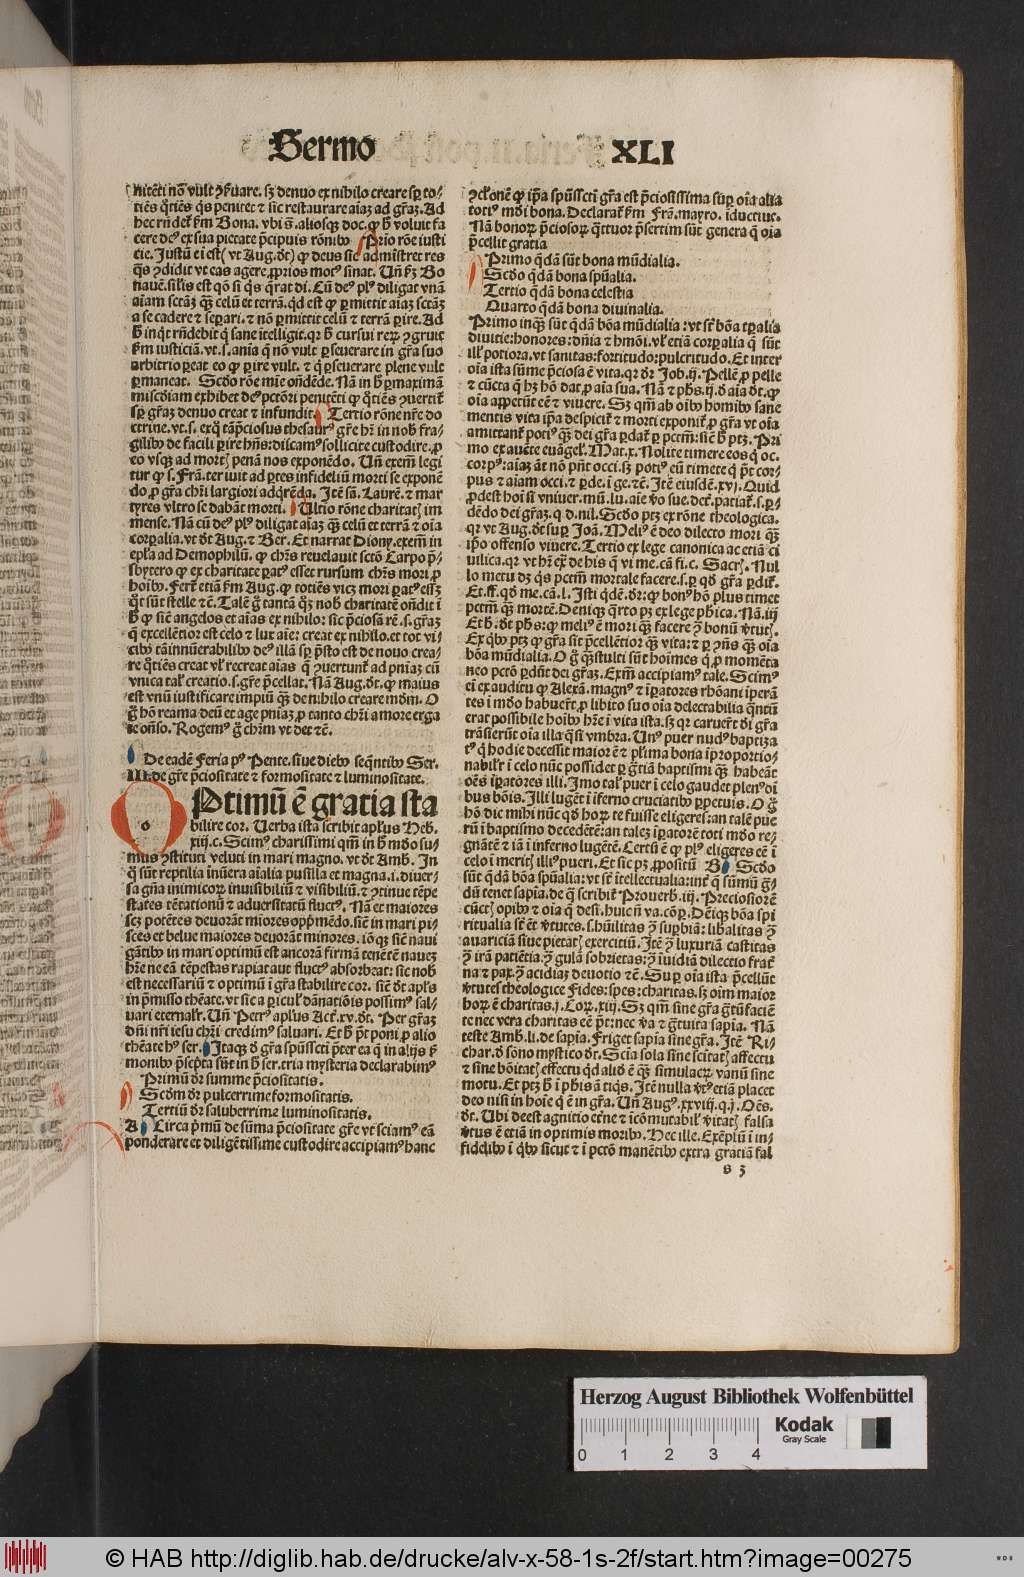 Sermo XLI
nitēti nō vult ꝯẜuare. sꝫ denuo ex nihilo creare sꝑ to-
tiēs q̄tiēs q̄s penitet ⁊ sic restaurare aiaꝫ ad gr̄aꝫ. Ad
cere deꝰ ex sua pietate p̄cipuis rōnibꝰ Prio rōe iusti
cie. Justū ei est (vt Aug. dt) ꝙ deus sic admīstret res
q̄s ꝯdidit vt eas agere ꝓprios motꝰ sinat. Un̄ ẜm Bo
nauē. silis est qō si q̄s q̄rat di. Cū deꝰ plꝰ diligat vnā
aīam sctāꝫ qꝫ celū et terrā. qd est ꝙ ꝑmittit aiaꝫ sctāꝫ
a se cadere ⁊ seꝑari. ⁊ nō ꝑmittit celū ⁊ terrā ꝑire. Ad
ẜm iusticiā. vt. s. ania q̄ nō vult ꝑseuerare in gr̄a suo
arbitrio ꝑeat eo ꝙ ꝑire vult. ⁊ q̄ ꝑseuerare plene vult
ꝑmaneat. Scdo rōne mīe on̄dēde. Nā in h̄ ꝑ maximā
miscdiam exhibet deꝰ pctōri penitēti ꝙ q̄tiēs ꝯuertit̄
sꝑ gr̄aꝫ denuo creat ⁊ infundit. Tertio rōne nr̄e do
ctrine. vt. s. ex q̄ tā p̄ciosus thesaurꝰ gr̄e hr̄ in nob̄ fra-
gilibꝰ de facili ꝑire hn̄s: discamꝰ sollicite custodire. ꝓ
eo vsqꝫ ad mortꝭ penā nos exponēdo. Un̄ exem̄ legi
tur ꝙ s. Frā. ter iuit ad ꝑtes infideliū morti se exponē
do ꝓ gr̄a chr̄i largiori adq̄rēda. Itē sā. Laurē. ⁊ mar
tyres vltro se dabāt morti. Ultio rōne charitatꝭ im
mense. Nā cū deꝰ plꝰ diligat aīaꝫ qꝫ celū et terrā ⁊ oīa
corꝑalia. vt dt Aug. ⁊ Ber. Et narrat Diony. exem̄ in
epl'a ad Demophilū. ꝙ chr̄s reuelauit sctō Carpo p̄-
sbytero ꝙ ex charitate ꝑatꝰ esset rursum chr̄s mori ꝓ
hoibꝰ. Fert̄ etiā ẜm Aug. ꝙ totiēs vicꝫ mori ꝑatꝰ eēt
q̄t sūt stelle ⁊c̄. Talē ḡ tantā qꝫ nob̄ charitatē on̄dit ī
h̄ ꝙ sic̄ angelos et aīas ex nihilo: sic p̄ciosā rē. s. gr̄aꝫ
q̄ excellētior est celo ⁊ luc aīe: creat ex nihilo. et tot vi-
cibꝰ tā innūerabilibꝰ deꝰ illā sꝑ p̄sto est de nouo crea-
re q̄tiēs creat vl' recreat aias q̄ ꝯuertunt̄ ad pnīaꝫ cū
vnica tal' creatio. s. gr̄e p̄cellat. Nā Aug. dt. ꝙ maius
est vnū iustificare impiū qꝫ de nihilo creare mdm. O
ḡ hō reama deū et age pnīaꝫ ꝓ tanto chr̄i amore erga
te on̄so. Rogemꝰ ḡ chr̄m vt det ⁊c̄.
De eadē Feria pꝰ Pente. siue diebꝰ seq̄ntibꝰ Ser.
III. de gr̄e p̄ciositate ⁊ formositate ⁊ luminositate.
OPtimū ē gratia sta
bilire cor. Uerba ista scribit apl'us Heb.
xiij. c. Scimꝰ charissimi qm̄ in h̄ mdo su-
mus ꝯstituti veluti in mari magno. vt dt Amb. In
q̄ sūt reptilia inūera aīalia pusilla et magna. i. diuer-
sa gn̄a inimicoꝝ inuisibiliū ⁊ visibiliū. ⁊ ꝯtinue tēpe
states tētationū ⁊ aduersitatū fluctꝰ. Nā et maiores
scꝫ potētes deuorāt miores opp̄mēdo. sic̄ in mari pi-
sces et belue maiores deuorāt minores. iō qꝫ sic̄ naui
gātibꝰ in mari optimū est ancorā firmā tenētē naueꝫ
hr̄e ne eā tēpestas rapiat aut fluctꝰ absorbeat: sic nob̄
est necessariū ⁊ optimū ī gr̄a stabilire cor. sic̄ dt apl's
in p̄misso thēate. vt sic a ꝑiculꝰ dānatiōis possimꝰ sal-
uari eternalr̄. Un̄ Petrꝰ apl'us Act̄. xv. dt. Per gr̄aꝫ
dn̄i nr̄i iesu chr̄i credimꝰ saluari. Et h̄ p̄t poni ꝓ alio
thēate hꝰ ser. Itaqꝫ d̄ gr̄a spūsscti p̄ter ea q̄ in alijs ẜ-
monibꝰ p̄scpta sūt in h̄ ser. tria mysteria declarabimꝰ
Primū dr̄ summe p̄ciositatis.
Scdm dr̄ pulcerrime formositatis.
Tertiū dr̄ saluberrime luminositatis.
A Circa p̄mū de sūma p̄ciositate gr̄e vt sciamꝰ eā
ponderare et diligētissime custodire accipiamꝰ hanc
ꝯcl'onē ꝙ ip̄a spūsscti gr̄a est p̄ciosissima suꝑ oīa alia
totiꝰ mdi bona. Declarat̄ ẜm Frā. mayro. īductiue.
Nā bonoꝝ p̄ciosoꝝ q̄ttuor p̄sertim sūt genera q̄ oīa
p̄cellit gratia
Primo q̄dā sūt bona mūdialia.
Scdo q̄dā bona spūalia.
Tertio q̄dā bona celestia
Quarto q̄dā bona diuinalia.
Primo inqꝫ sūt q̄dā bōa mūdialia: vt sī bōa tꝑalia
diuitie: honores: dn̄ia ⁊ hmōi. vl' etiā corꝑalia q̄ sūt
ill' potiora. vt sanitas: fortitudo: pulcritudo. Et inter
oīa ista sūme p̄ciosa ē vita. qꝛ dr̄ Job. ij. Pellē ꝓ pelle
⁊ cūcta q̄ hꝫ hō dat ꝓ aīa sua. Nā ⁊ ph̄s. ij. d̄ aīa dt. ꝙ
oīa appetūt eē ⁊ viuere. Sꝫ qm̄ ab oībꝰ hoibꝰ sane
mentis vita ip̄a despicit̄ ⁊ morti exponit̄ ꝓ gr̄a vt oīa
amittant̄ potiꝰ qꝫ dei gr̄a ꝑdat̄ ꝑ pctm̄: sic̄ h̄ ptꝫ. Pri
mo ex aucte euāgel'. Mat. x. Nolite timere eos q̄ oc.
corpꝰ: aīaꝫ āt nō pn̄t occi. sꝫ potiꝰ eū timete q̄ p̄t cor-
pus ⁊ aīam occi. ⁊ ꝑde. i ge. ⁊c̄. Itē eiusdē. xvj. Quid
ꝓdest hoī si vniuer. mū. lu. aīe v̄o sue. det̄. patiat̄. s. ꝑ-
dēdo dei gr̄aꝫ. q. d. nil. Scdo ptꝫ ex rōne theologica.
qꝛ vt Aug. dt suꝑ Joā. Meliꝰ ē deo dilecto mori qꝫ
ip̄o offenso viuere. Tertio ex lege canonica ac etiā ci
lo metu dꝫ q̄s pctm̄ mortale facere. s. ꝑ qd gr̄a ꝑdit̄.
Ex qbꝰ ptꝫ ꝙ gr̄a sit p̄cellētior qꝫ vita: ⁊ ꝑ ꝯn̄s qꝫ oīa
bōa mūdialia. O ḡ qꝫ stulti sūt hoīmes q̄ ꝓ momēta
neo pctō ꝑdūt dei gr̄aꝫ. Exm̄ accipiamꝰ tale. Scimꝰ
ei ex auditu ꝙ Alexā. magnꝰ ⁊ īꝑatores rhōani īperā
tes i mdo habuert̄ ꝓ libito suo oīa delectabilia q̄ntū
erat possibile hoibꝰ hr̄e i vita ista. sꝫ qꝛ caruert̄ di gr̄a
trāsierūt oīa illa q̄si vmbra. Unꝰ puer nudꝰ baptiza
tꝰ q̄ hodie decessit maior ē ⁊ pl'ima bona īproportio-
nabilr̄ ī celo nūc possidet ꝑ gr̄iā baptismi qꝫ habeāt
oēs īꝑatores illi. Imo tal' puer ī celo gaudet plenꝰ oī
bus bōis. Illi lugēt ī īferno cruciatibꝰ ꝑpetuis. O ḡ
hō dic mihi nūc qd hoꝝ te fuisse eligeres: an talē pue
rū ī baptismo decedētē: an taleꝫ īꝑatorē toti mdo re-
gnātē ⁊ iā i inferno lugētē. Certū ē ꝙ plꝰ eligeres eē ī
celo ī meritꝭ illiꝰ pueri. Et sic pꝫ ꝓpositū B Scdo
sūt q̄dā bōa spūalia: vt sī itellectualia: int̄ q̄ sūmū ḡ-
dū tenet sapīa. de q̄ scribit̄ Prouerb. iij. Preciosiorē
cūctꝭ opibꝰ ⁊ oīa q̄ desi. huic n̄ va. cōꝑ. Deīqꝫ bōa spi
ritualia st̄ ēt v̄tutes. s. hūilitas ꝯ suꝑbiā: libalitas ꝯ
auariciā siue pietatꝭ exercitiū. Itē ꝯ luxuriā castitas
ꝯ irā patiētia. ꝯ gulā sobrietas: ꝯ īuidiā dilectio frat̄
na ⁊ pax. ꝯ acidiaꝫ deuotio ⁊c̄. Suꝑ oīa ista p̄cellūt
v̄tutes theologice Fides: spes: charitas. sꝫ oīm maior
hoꝝ ē charitas. j. Coꝝ. xiij. Sꝫ qm̄ sine gr̄a ḡtū faciē
te nec vera charitas eē p̄t: nec v̄a ⁊ ḡtuita sapīa. Nā
teste Amb. li. de sapīa. Friget sapīa sine gr̄a. Itē Ri-
char. d̄ sōno mystico dt. Scīa sola sine scītatꝭ affectu
⁊ sine bōitatꝭ effectu qd aliđ ē qꝫ simulacꝝ vanū sine
motu. Et ptꝫ h̄ ī ph̄is ātiq̄s. Itē nulla v̄tꝰ etiā placet
deo nisi in hoīe q̄ ē in gr̄a. Un̄ Augꝰ. xxviij. q. j. Oēs.
dt. Ubi deest agnitio et̄ne ⁊ īcōmutabil' v̄itatꝭ falsa
v̄tus ē etiā in optimis moribꝰ. Hec ille. Exēplū ī in-
fidelibꝰ ī qbꝰ sicut ⁊ ī pctō manētibꝰ extra gratiā fal
s 3
Herzog August Bibliothek Wolfenbüttel
0 1 2 3 4
Kodak
Gray Scale
© HAB http://diglib.hab.de/drucke/alv-x-58-1s-2f/start.htm?image=00275